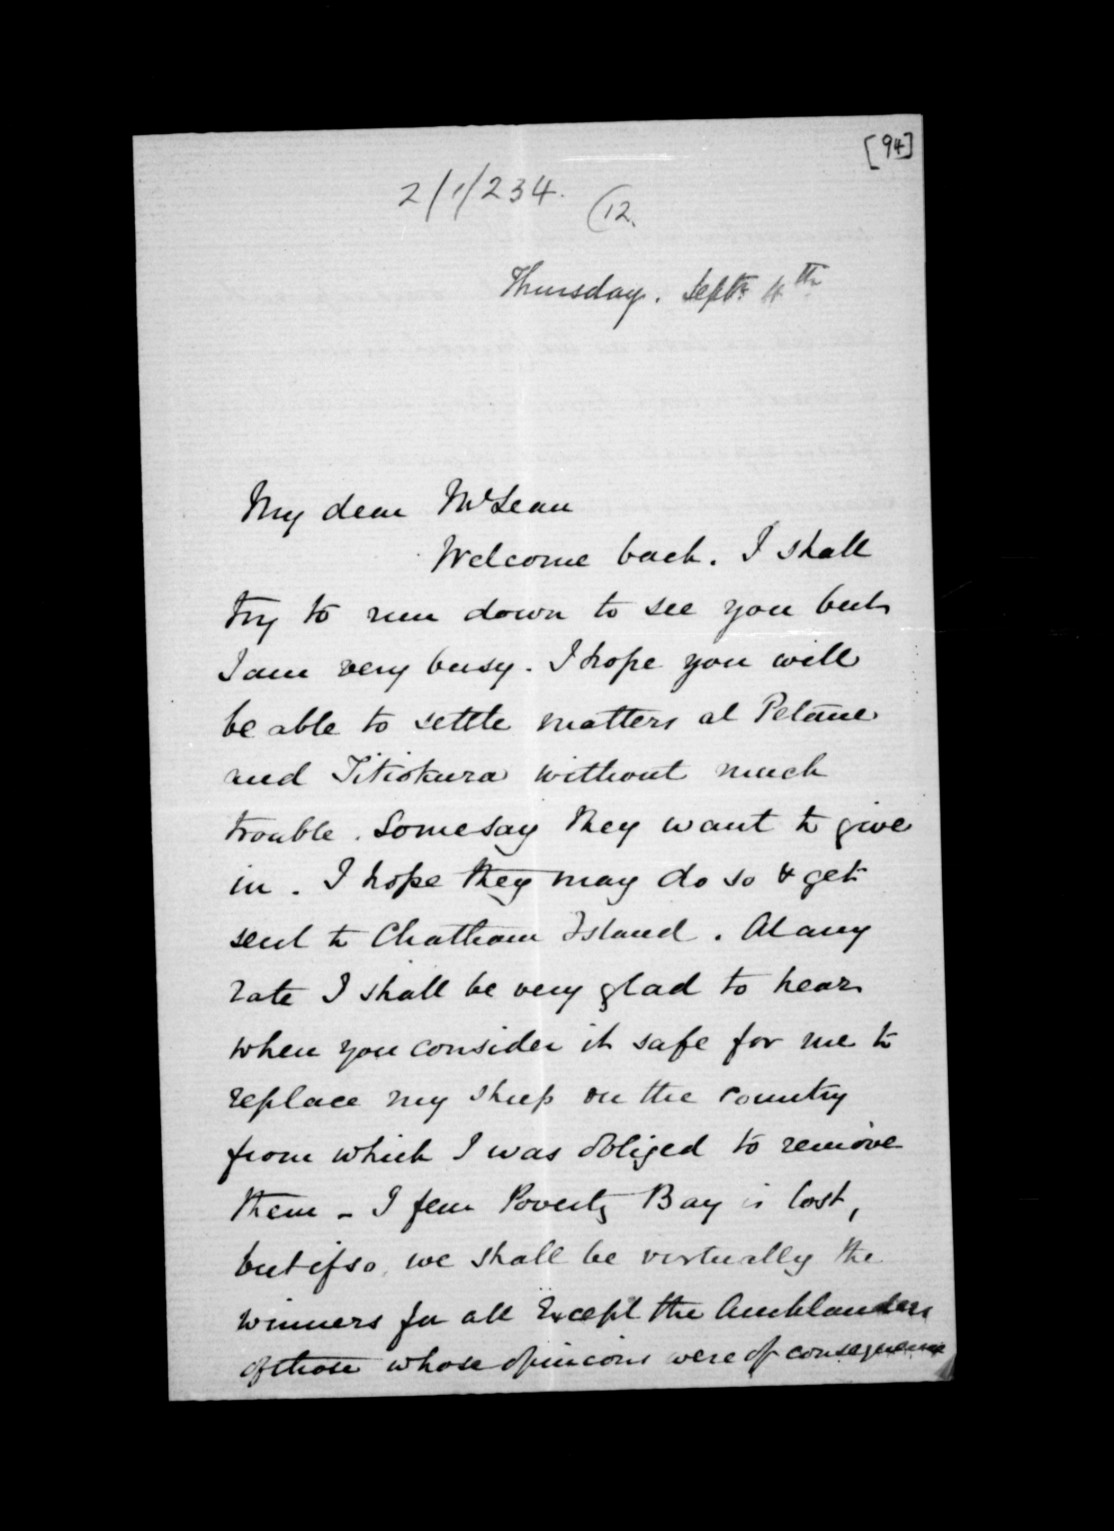 [94]
2/1/234.
(12.
Thursday. Septr 4th
My dear McLean
Welcome back. I shall
try to run down to see you but
I am very busy. I hope you will
be able to settle matters at Petane
and Titiokura without much
trouble. Some say they want to give
in. I hope they may do so & get
sent to Chatham Island. At any
rate I shall be very glad to hear
when you consider it safe for me to
replace my sheep on the country
from which I was obliged to remove
them - I fear Poverty Bay is lost,
but if so, we shall be virtually the
winners for all Except the Aucklanders
of those whose opinions were of consequence